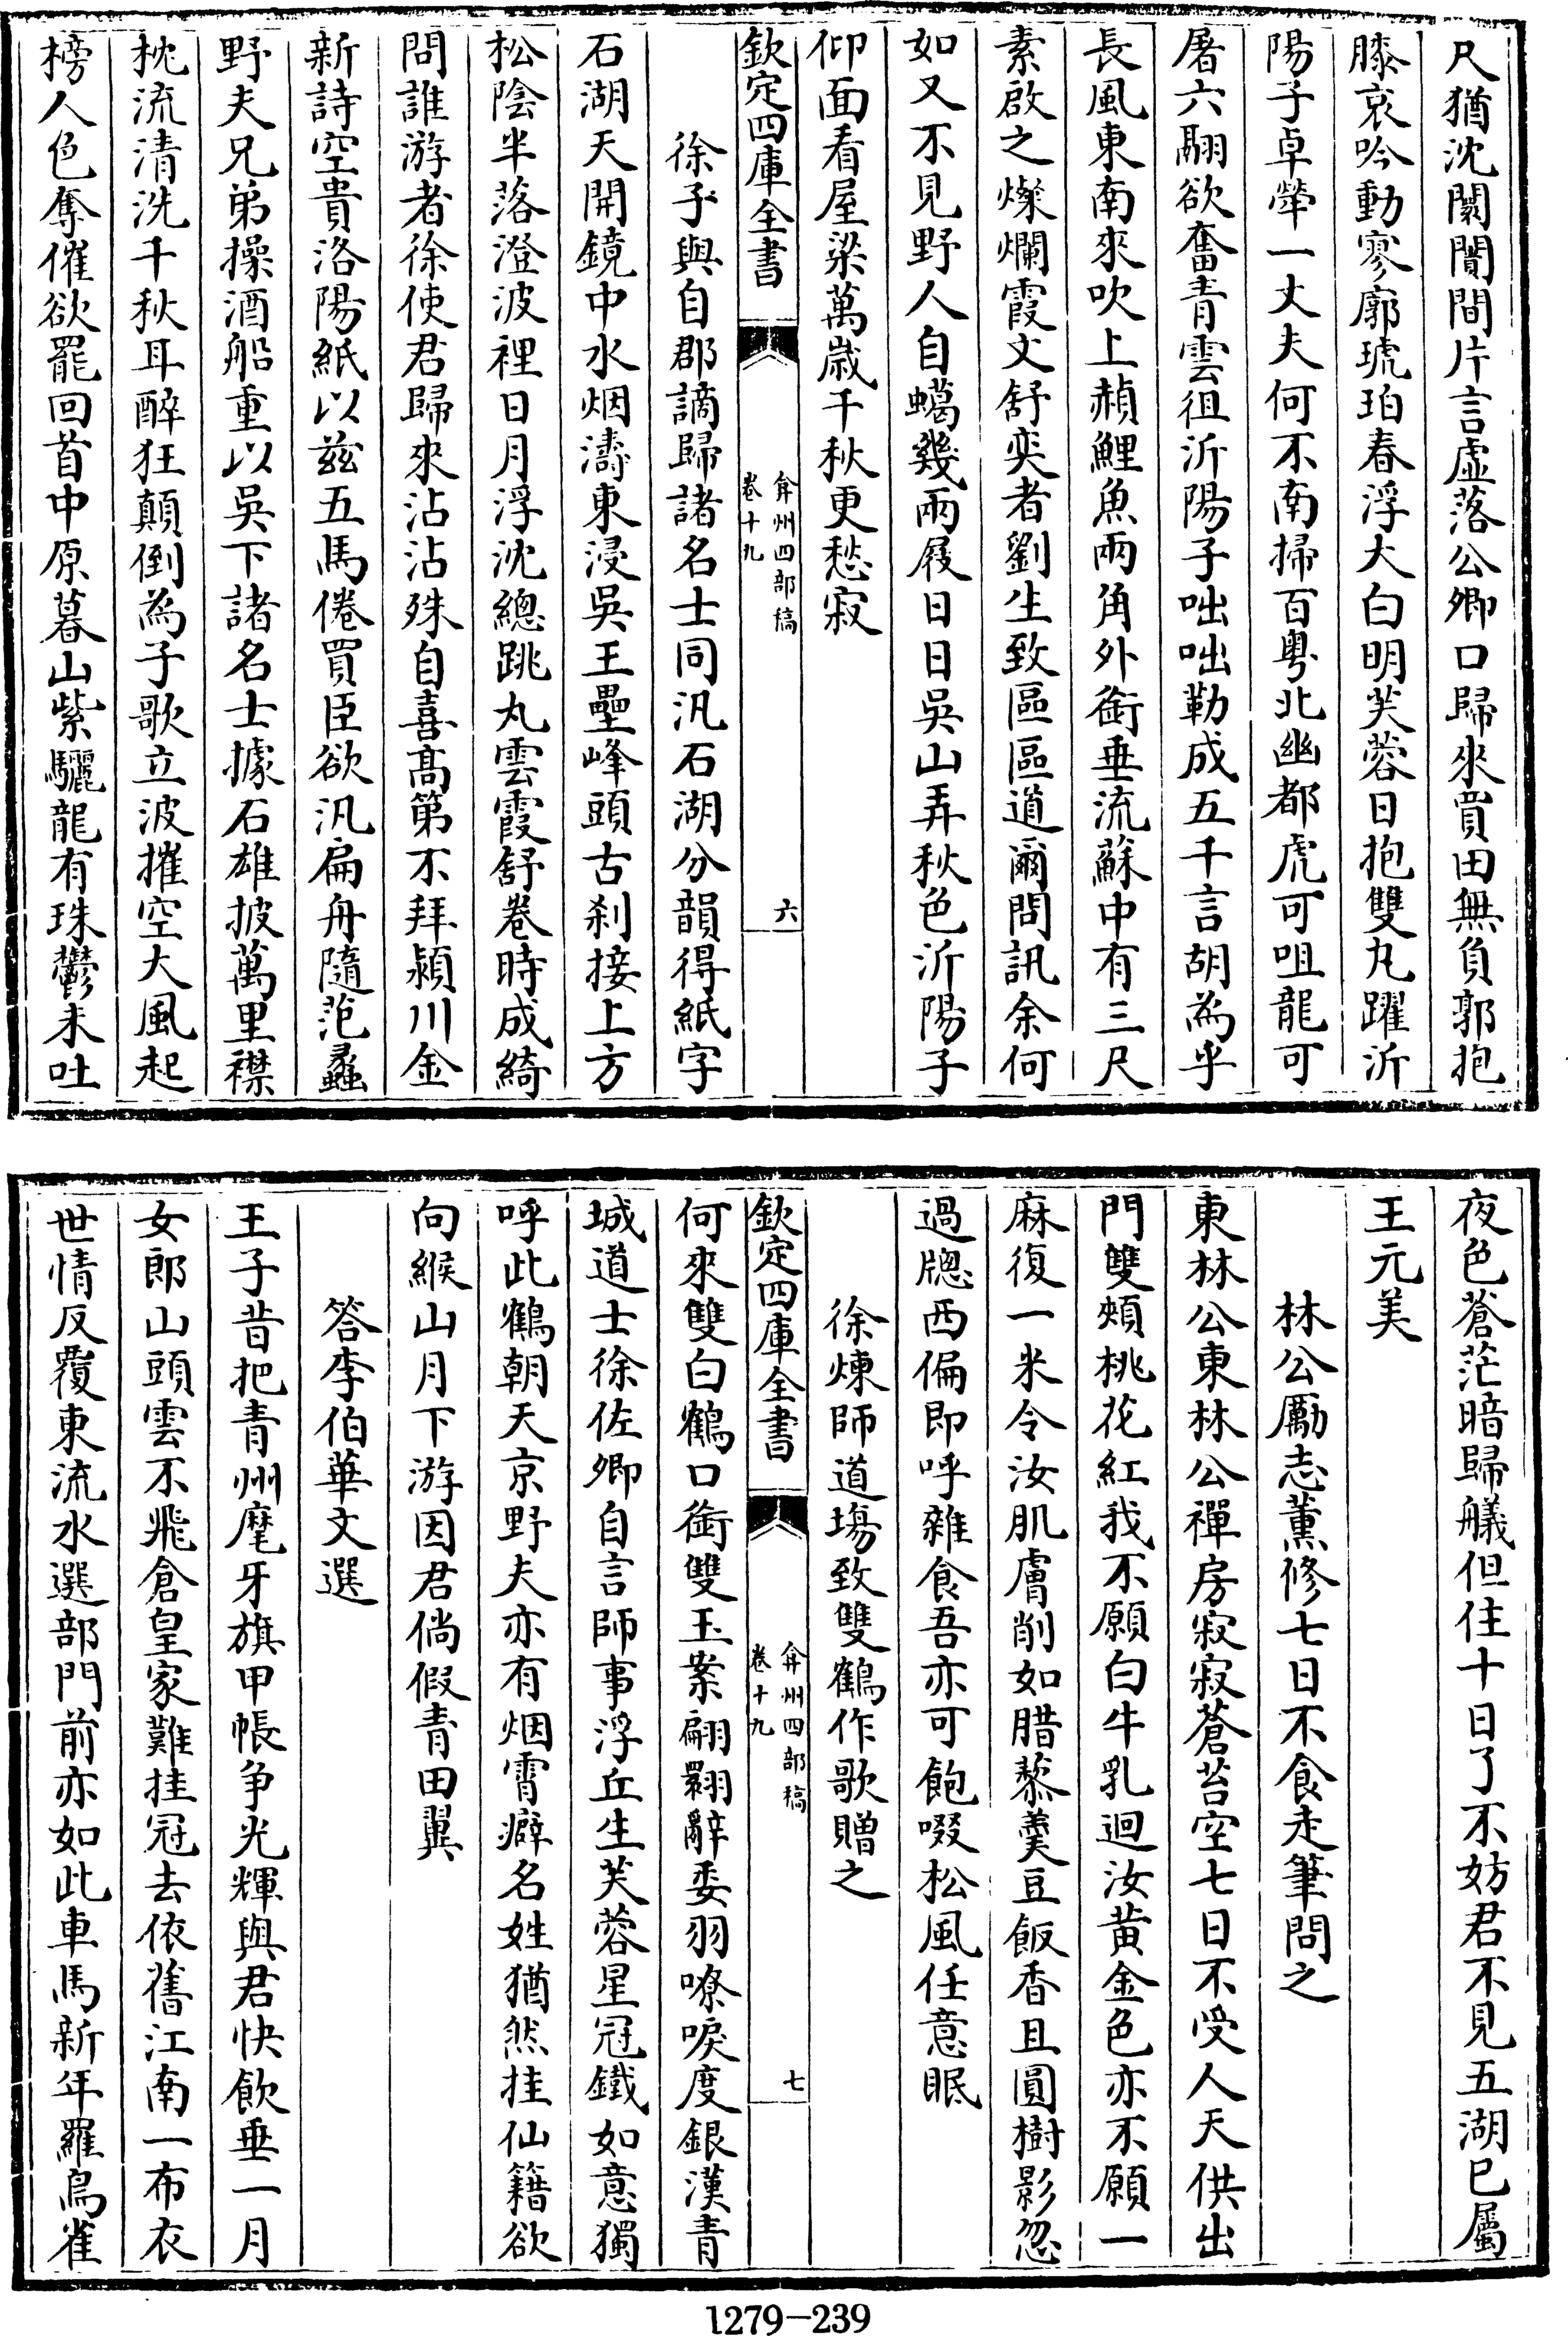 尺猶沈闤闠間片言虛落公卿口歸來買田無負郭抱
膝哀吟動寥廓琥珀春浮大白明芙蓉日抱雙丸躍沂
陽子卓犖一丈夫何不南掃百粵北幽都虎可咀龍可
屠六翮欲奮青雲徂沂陽子咄咄勒成五千言胡為乎
長風東南來吹上赬鯉魚兩角外銜垂流蘇中有三尺
素啟之燦爛霞文舒奕者劉生致區區道爾問訊余何
如又不見野人自蠟幾兩屐日日吳山弄秋色沂陽子
仰面看屋梁萬歲千秋更愁寂
欽定四庫全書
弇州四部稿
卷十九
六
徐子與自郡謫歸諸名士同汎石湖分韻得紙字
石湖天開鏡中水烟濤東浸吳王壘峰頭古剎接上方
松陰半落澄波裡日月浮沈總跳丸雲霞舒卷時成綺
問誰游者徐使君歸來沾沾殊自喜高第不拜潁川金
新詩空貴洛陽紙以兹五馬倦買臣欲汎扁舟隨范蠡
野夫兄弟操酒船重以吳下諸名士據石雄披萬里襟
枕流清洗千秋耳醉狂顛倒為子歌立波摧空大風起
榜人色奪催欲罷回首中原暮山紫驪龍有珠鬱未吐
夜色蒼茫暗歸艤但住十日了不妨君不見五湖已屬
王元美
林公勵志薰修七日不食走筆問之
東林公東林公禪房寂寂蒼苔空七日不受人天供出
門雙頰桃花紅我不願白牛乳迴汝黄金色亦不願一
麻復一米令汝肌膚削如腊藜羹豆飯香且圓樹影忽
過牕西偏即呼雜食吾亦可飽啜松風任意眠
徐煉師道塲致雙鶴作歌贈之
欽定四庫全書
弇州四部稿
卷十九
七
何來雙白鶴口銜雙玉案翩翾辭委羽嘹唳度銀漢青
城道士徐佐卿自言師事浮丘生芙蓉星冠鐵如意獨
呼此鶴朝天京野夫亦有烟霄癖名姓猶然挂仙籍欲
向緱山月下游因君倘假青田翼
答李伯華文選
王子昔把青州麾牙旗甲帳争光輝與君快飲垂一月
女郎山頭雲不飛倉皇家難挂冠去依舊江南一布衣
世情反覆東流水選部門前亦如此車馬新年羅鳥雀
1279-239